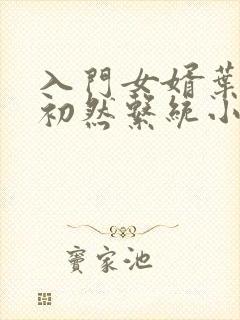 入門女婿葉
初然繫統小
寶家池